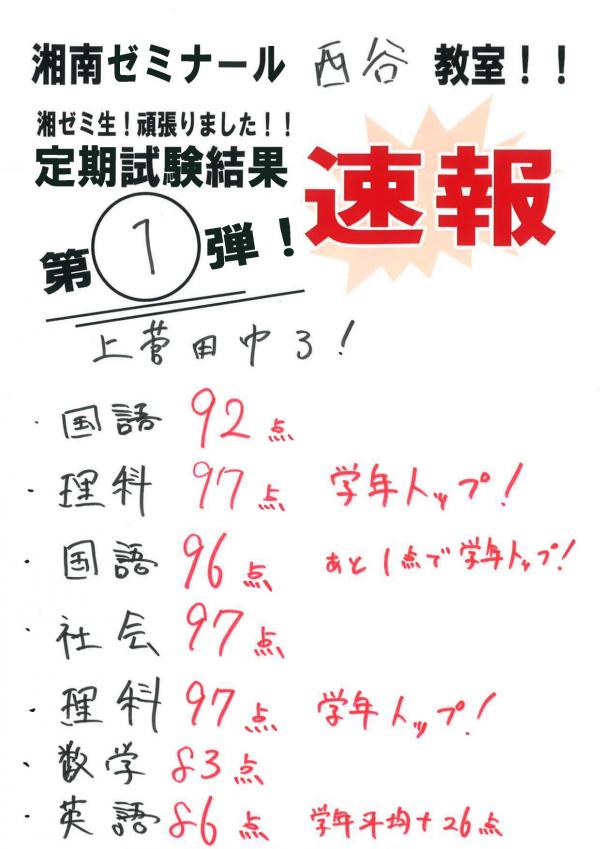 湘南ゼミナール 西谷 教室！！
湘ゼミ生！頑張りました！！
定期試験結果 速報
第1弾！
上菅田中3！
・国語 92点
・理科 97点 学年トップ！
・国語 96点 あと1点で学年トップ！
・社会 97点
・理科 97点 学年トップ！
・数学 83点
・英語 86点 学年平均+26点